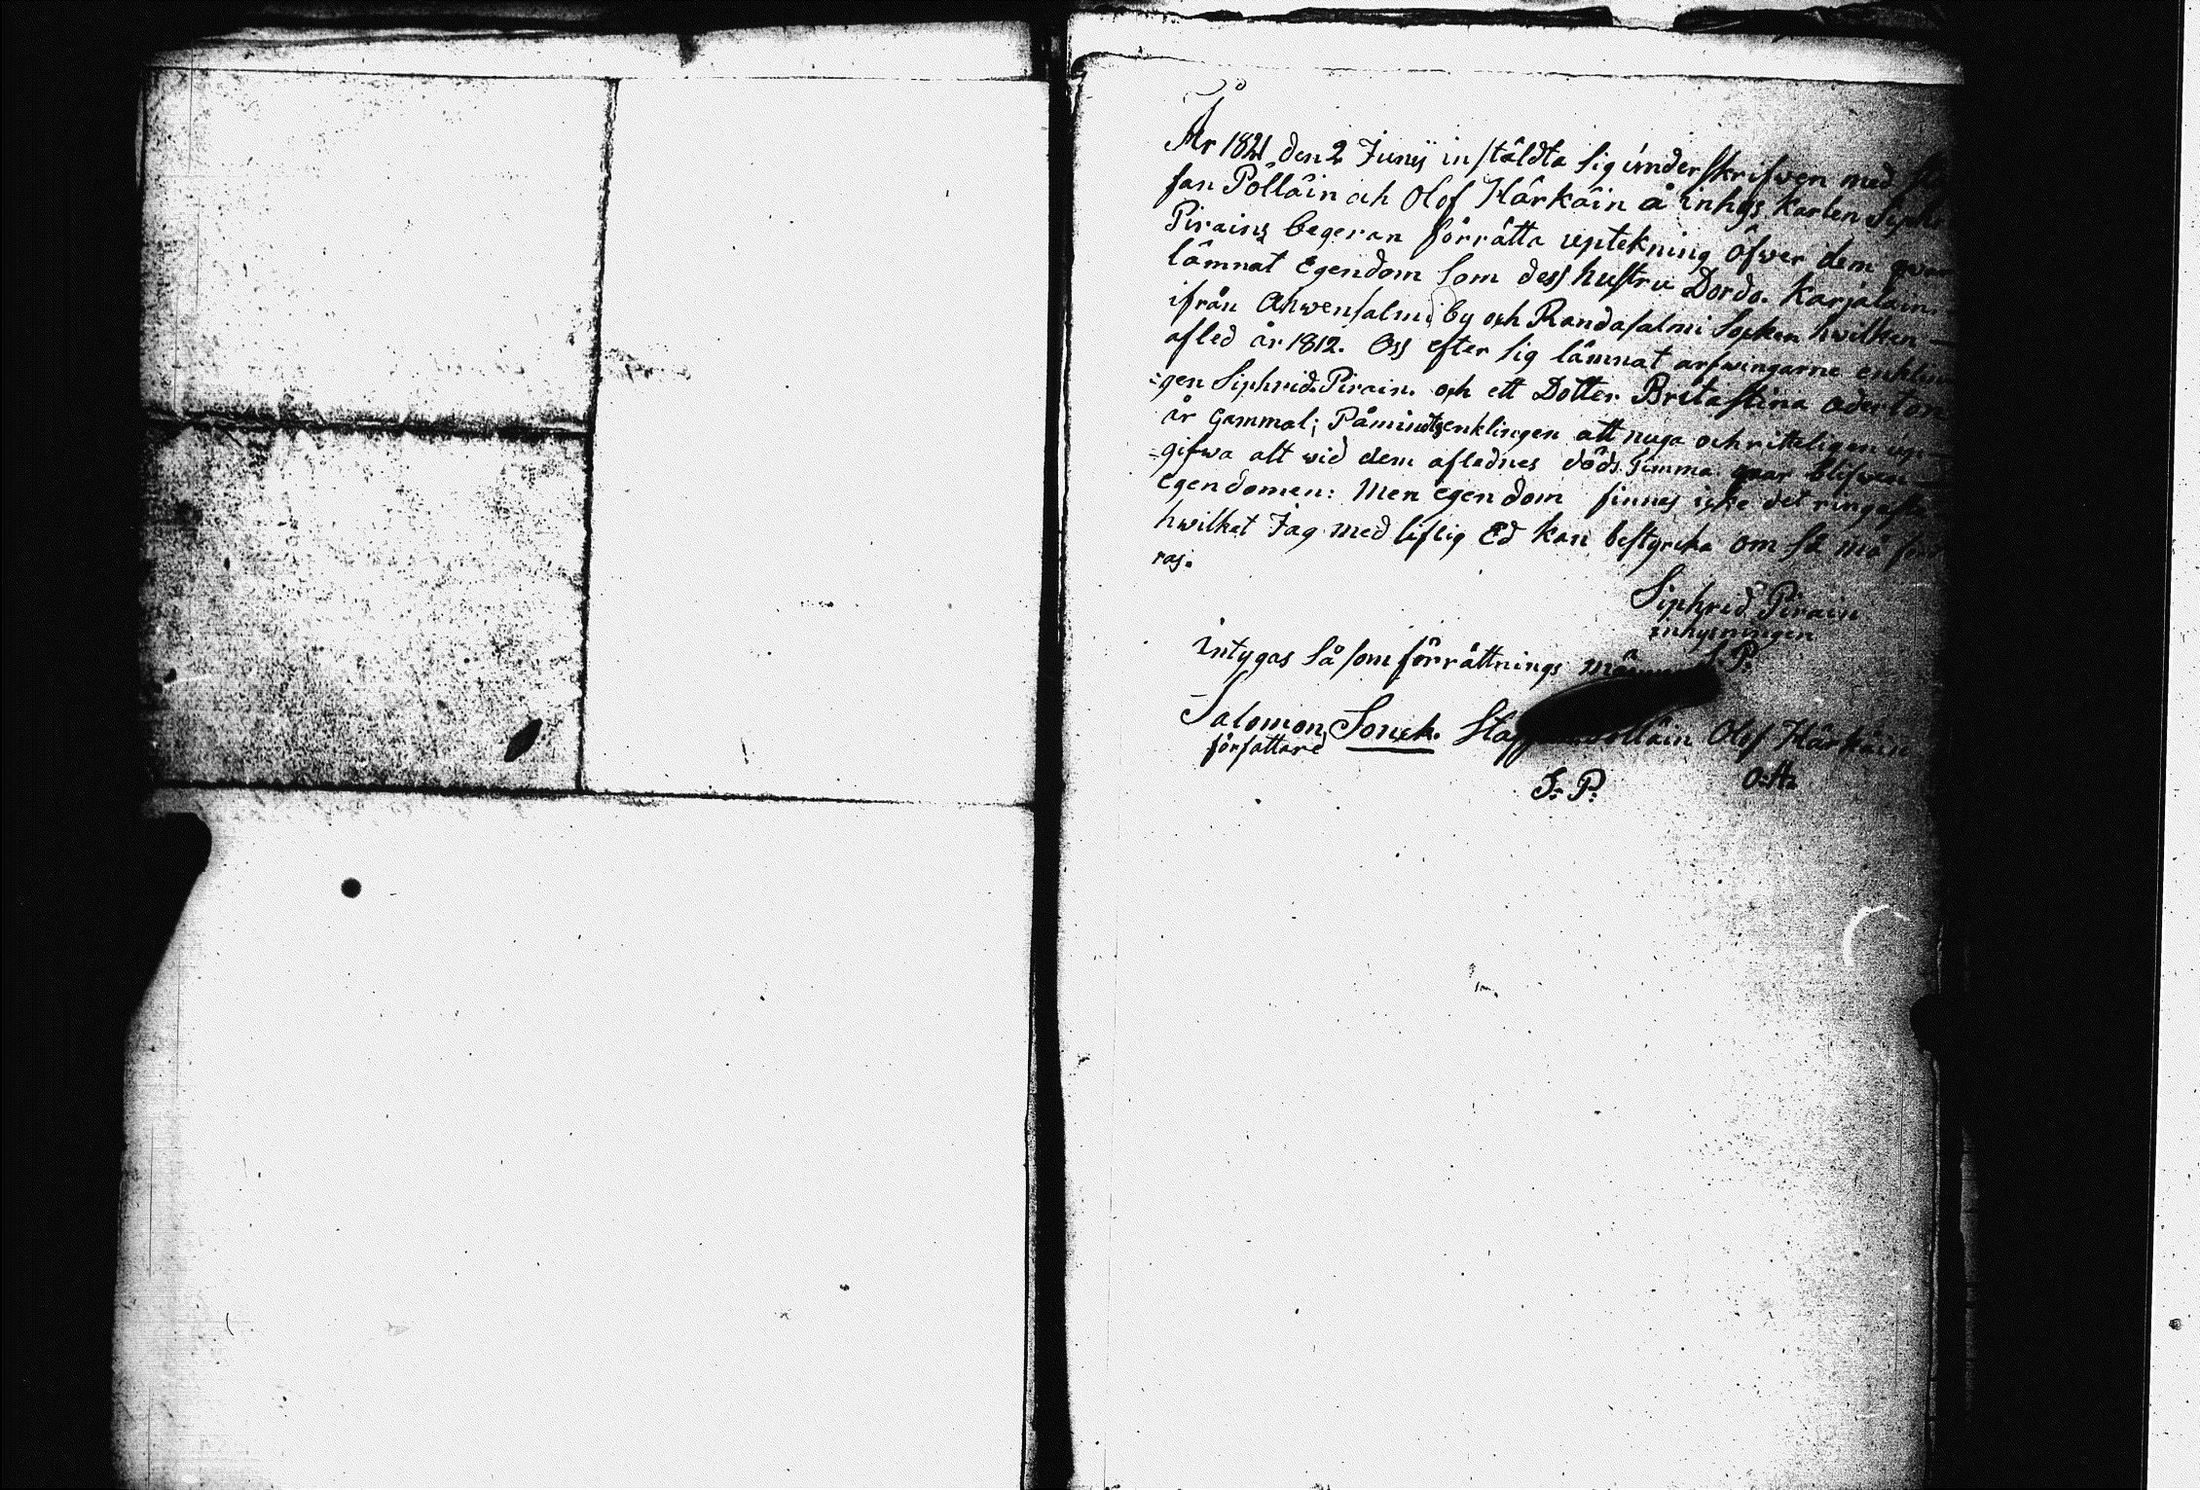 År 1821 den 2 Junij instäldta sig underskrifwen med
fan Pölläin och Olof Härkäin å inhys Karlen
Pirains begeran förrätta uptekning öfwer dem
lämnat Egendom som dess hustru Dordo. Karjalain
ifrån Ahwensalmi by och Randasalmi Socken hwilken
afled år 1812. Oss efter sig lämnat arfwingarne
gen Siphrid. Pirain. och ett Dotter Brita Stina aderton
år Gammal; Påmindtes enklingen att noga och ritteligen up
gifwa alt wid dem aflednes döds Timma qwar blifwen
Egendomen: Men Egendom finnes icke det ringaste
hwilket Jag med liflig Ed kan bestyrcka om så må
ras.
Siphrid Pirain
inhysningen
S. P.
Intygas så som förrättnings männ
Salomon Sonck. Olof Härkäin
författare
S: P: O: H: